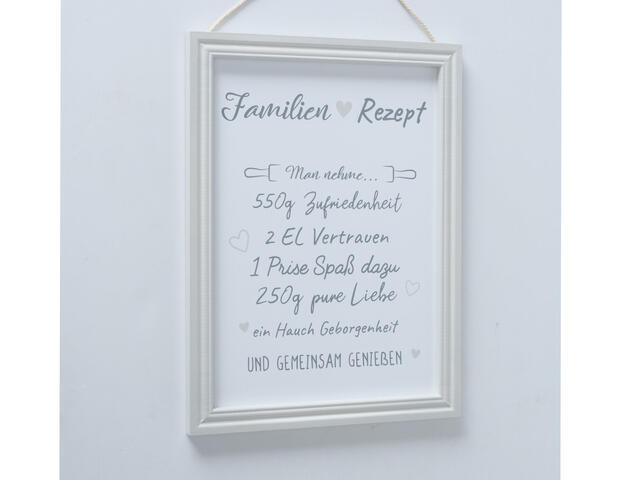 Familien Rezept
Man nehme...
550g Zufriedenheit
2 EL Vertrauen
1 Prise Spaß dazu
250g pure Liebe
ein Hauch Geborgenheit
UND GEMEINSAM GENIEßEN